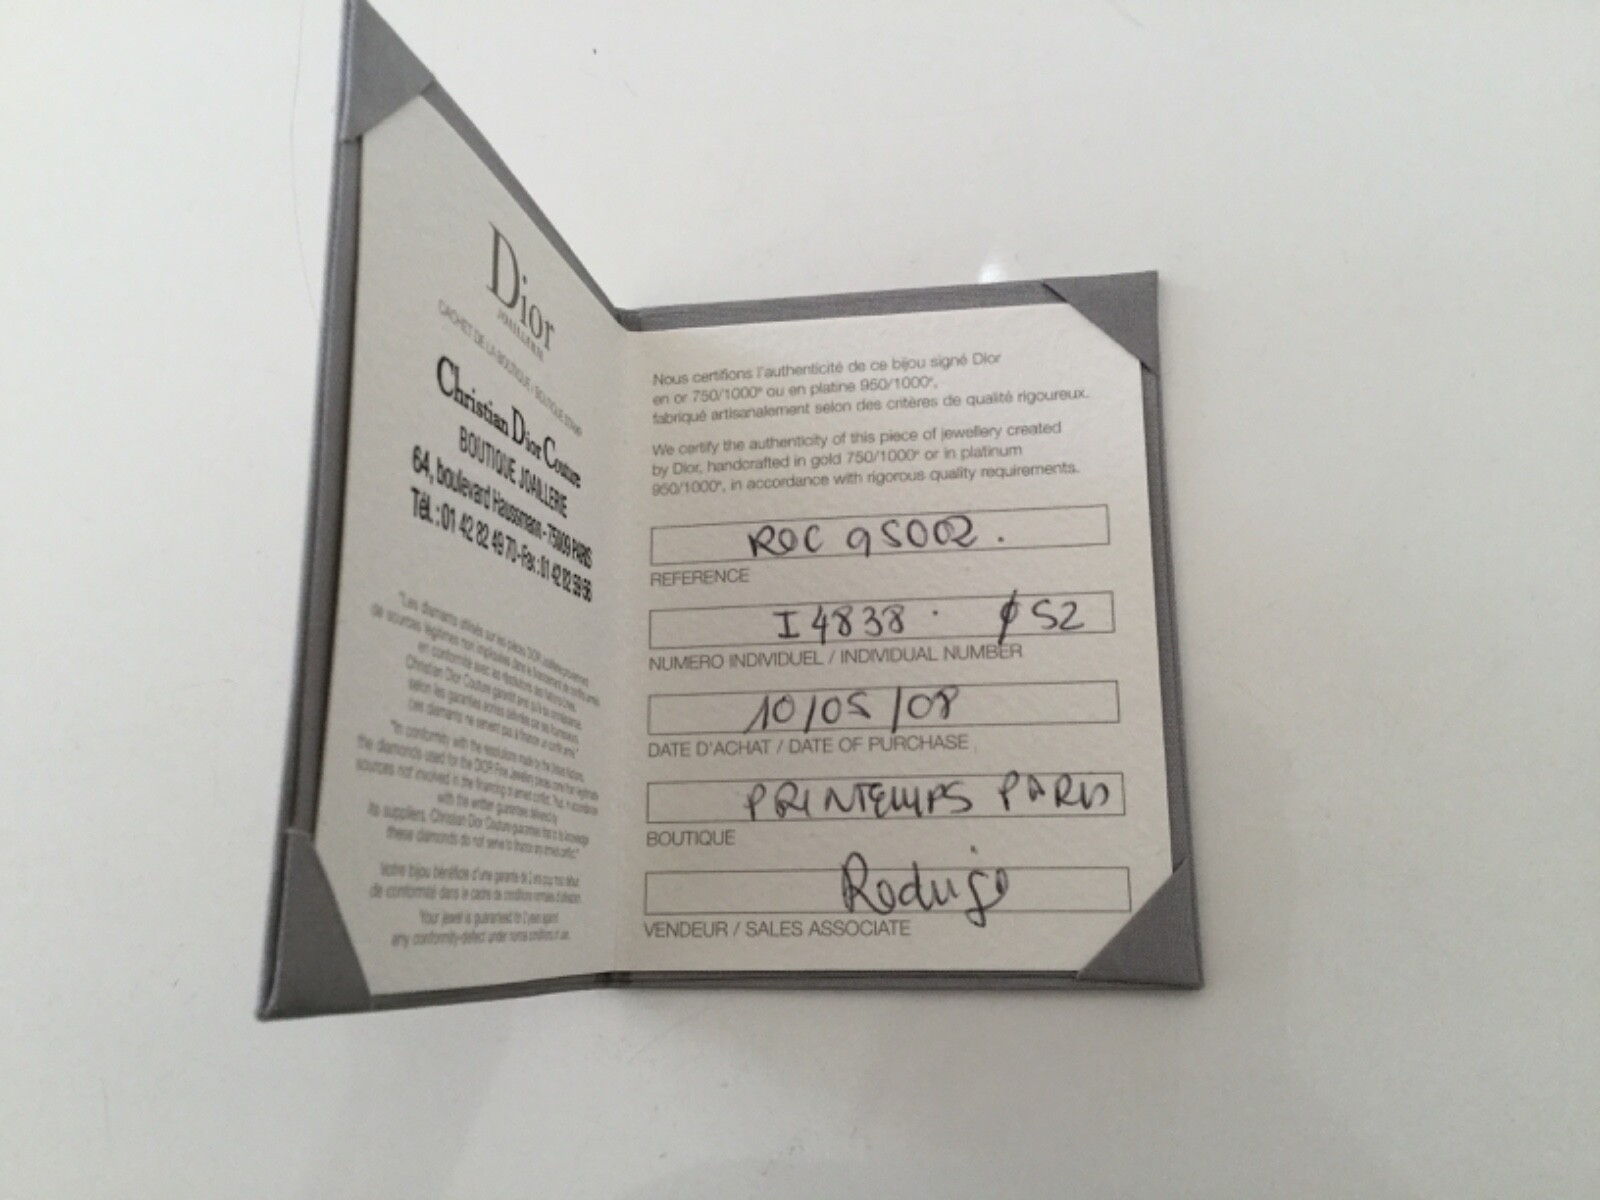 Dior
JOAILLERIE
CACHET DE LA BOUTIQUE / BOUTIQUE STAMP
Christian Dior Couture
BOUTIQUE JOAILLERIE
64, boulevard Haussmann - 75009 PARIS
Tél. : 01 42 82 49 70 - Fax : 01 42 82 59 56
"Les diamants utilisés sur les pièces DIOR Joaillerie proviennent
de sources légitimes non impliquées dans le financement de conflits armés
en conformité avec les résolutions des Nations Unies.
Christian Dior Couture garantit ainsi qu'à sa connaissance,
selon les garanties écrites délivrées par ses fournisseurs,
ces diamants ne servent pas à financer un conflit armé."
"In conformity with the resolutions made by the United Nations,
the diamonds used for the DIOR Fine Jewellery pieces come from legitimate
sources not involved in the financing of armed conflict. Thus, in accordance
with the written guarantees delivered by
its suppliers, Christian Dior Couture guarantees that to its knowledge
these diamonds do not serve to finance any armed conflict."
Votre bijou bénéficie d'une garantie de 2 ans pour tout défaut
de conformité dans le cadre de conditions normales d'utilisation.
Your jewel is guaranteed for 2 years against
any conformity-defect under normal conditions of use.
Nous certifions l'authenticité de ce bijou signé Dior
en or 750/1000e ou en platine 950/1000e,
fabriqué artisanalement selon des critères de qualité rigoureux.
We certify the authenticity of this piece of jewellery created
by Dior, handcrafted in gold 750/1000e or in platinum
950/1000e, in accordance with rigorous quality requirements.
ROC 95002.
REFERENCE
I4838 . ∅ 52
NUMERO INDIVIDUEL / INDIVIDUAL NUMBER
10/05/08
DATE D'ACHAT / DATE OF PURCHASE
PRINTEMPS PARIS
BOUTIQUE
Rodrigo
VENDEUR / SALES ASSOCIATE